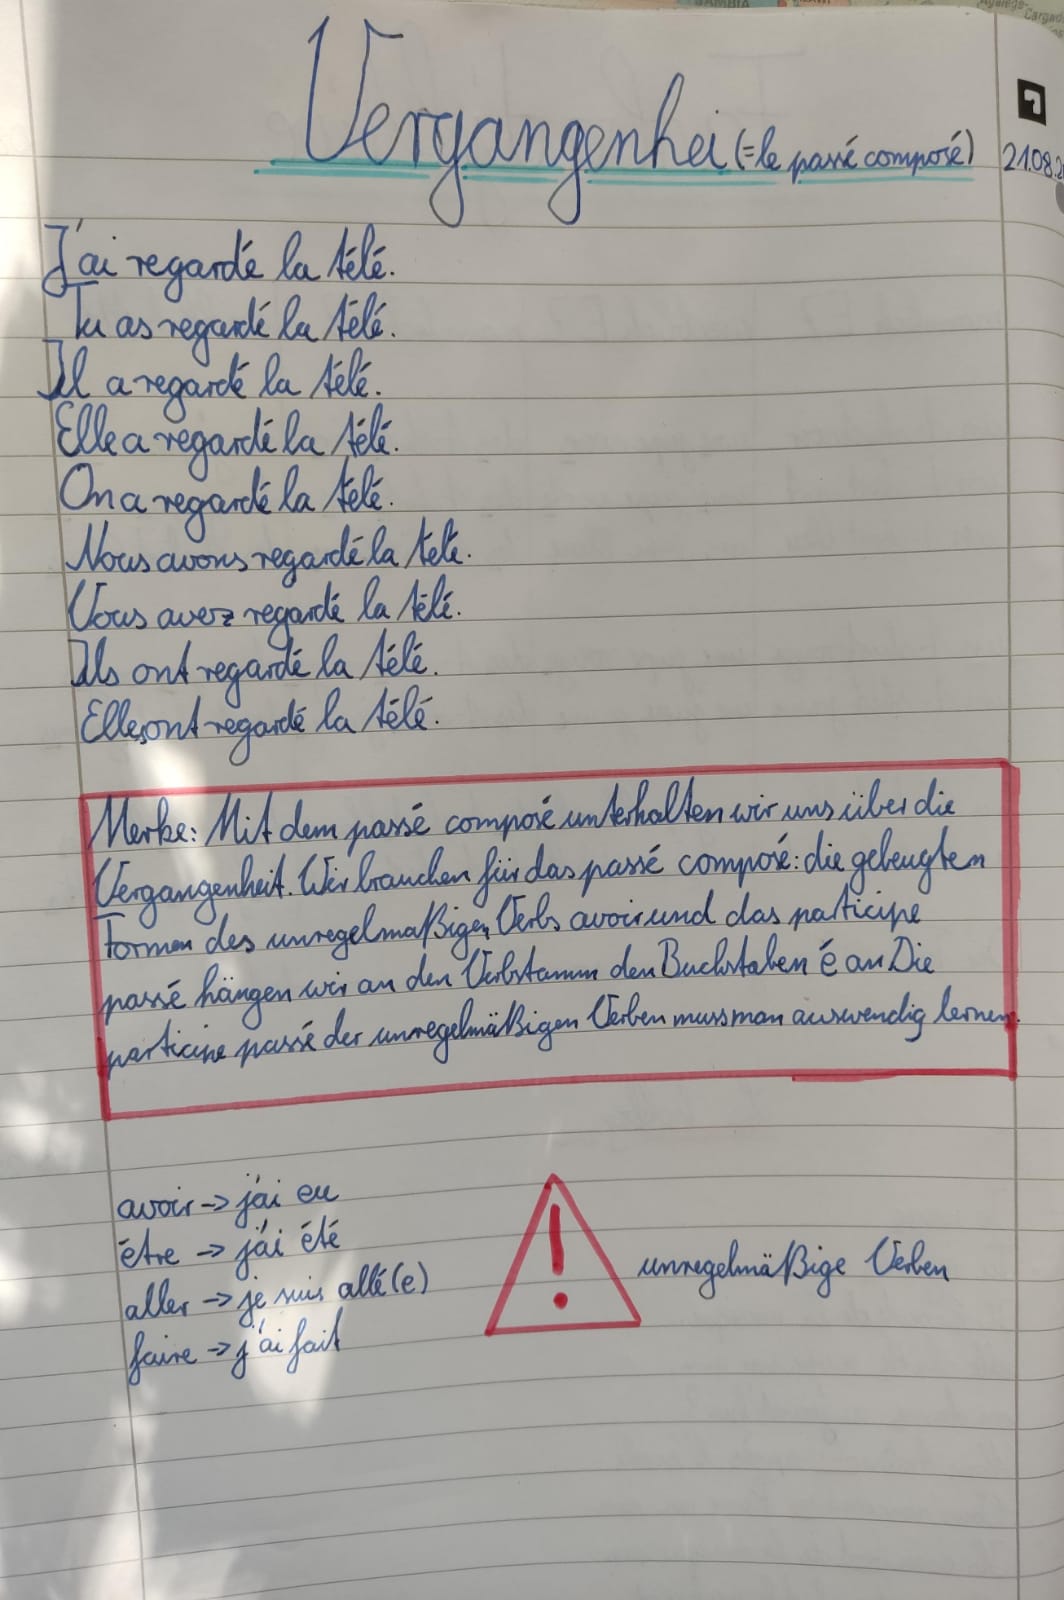 Vergangenhei (= le passé composé)
21.08.2
J'ai regardé la télé.
Tu as regardé la télé.
Il a regardé la télé.
Elle a regardé la télé.
On a regardé la télé.
Nous avons regardé la télé.
Vous avez regardé la télé.
Ils ont regardé la télé.
Elles ont regardé la télé.
Merke: Mit dem passé composé unterhalten wir uns über die
Vergangenheit. Wir brauchen für das passé composé: die gebeugten
Formen des unregelmäßigen Verbs avoir und das participe
passé hängen wir an den Verbstamm den Buchstaben é an Die
participe passé der unregelmäßigen Verben muss man auswendig lernen.
avoir -> j'ai eu
être -> j'ai été
aller -> je suis allé(e)
faire -> j'ai fait
!
unregelmäßige Verben